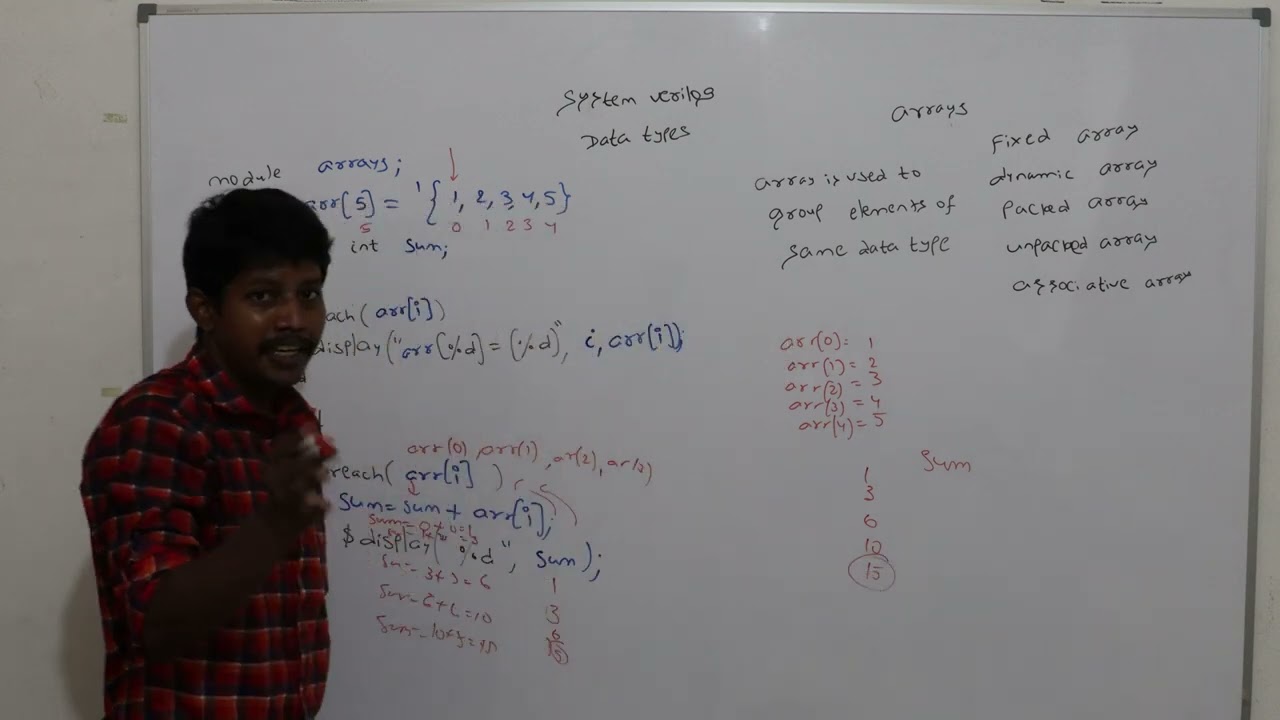 System verilog
Data types
module arrays;
arr[5] = '{1, 2, 3, 4, 5}
5 0 1 2 3 4
int sum;
ach(arr[i])
display("arr[%d] = (%d)", i, arr[i]);
arr(0), arr(1), ar(2), ar(3)
reach(arr[i])
sum = sum + arr[i];
$display("%d", sum);
sum = 3+3=6
1
3
6
arrays
array is used to
group elements of
same data type
Fixed array
dynamic array
packed array
unpacked array
associative array
arr(0) = 1
arr(1) = 2
arr(2) = 3
arr(3) = 4
arr(4) = 5
Sum
1
3
6
10
15